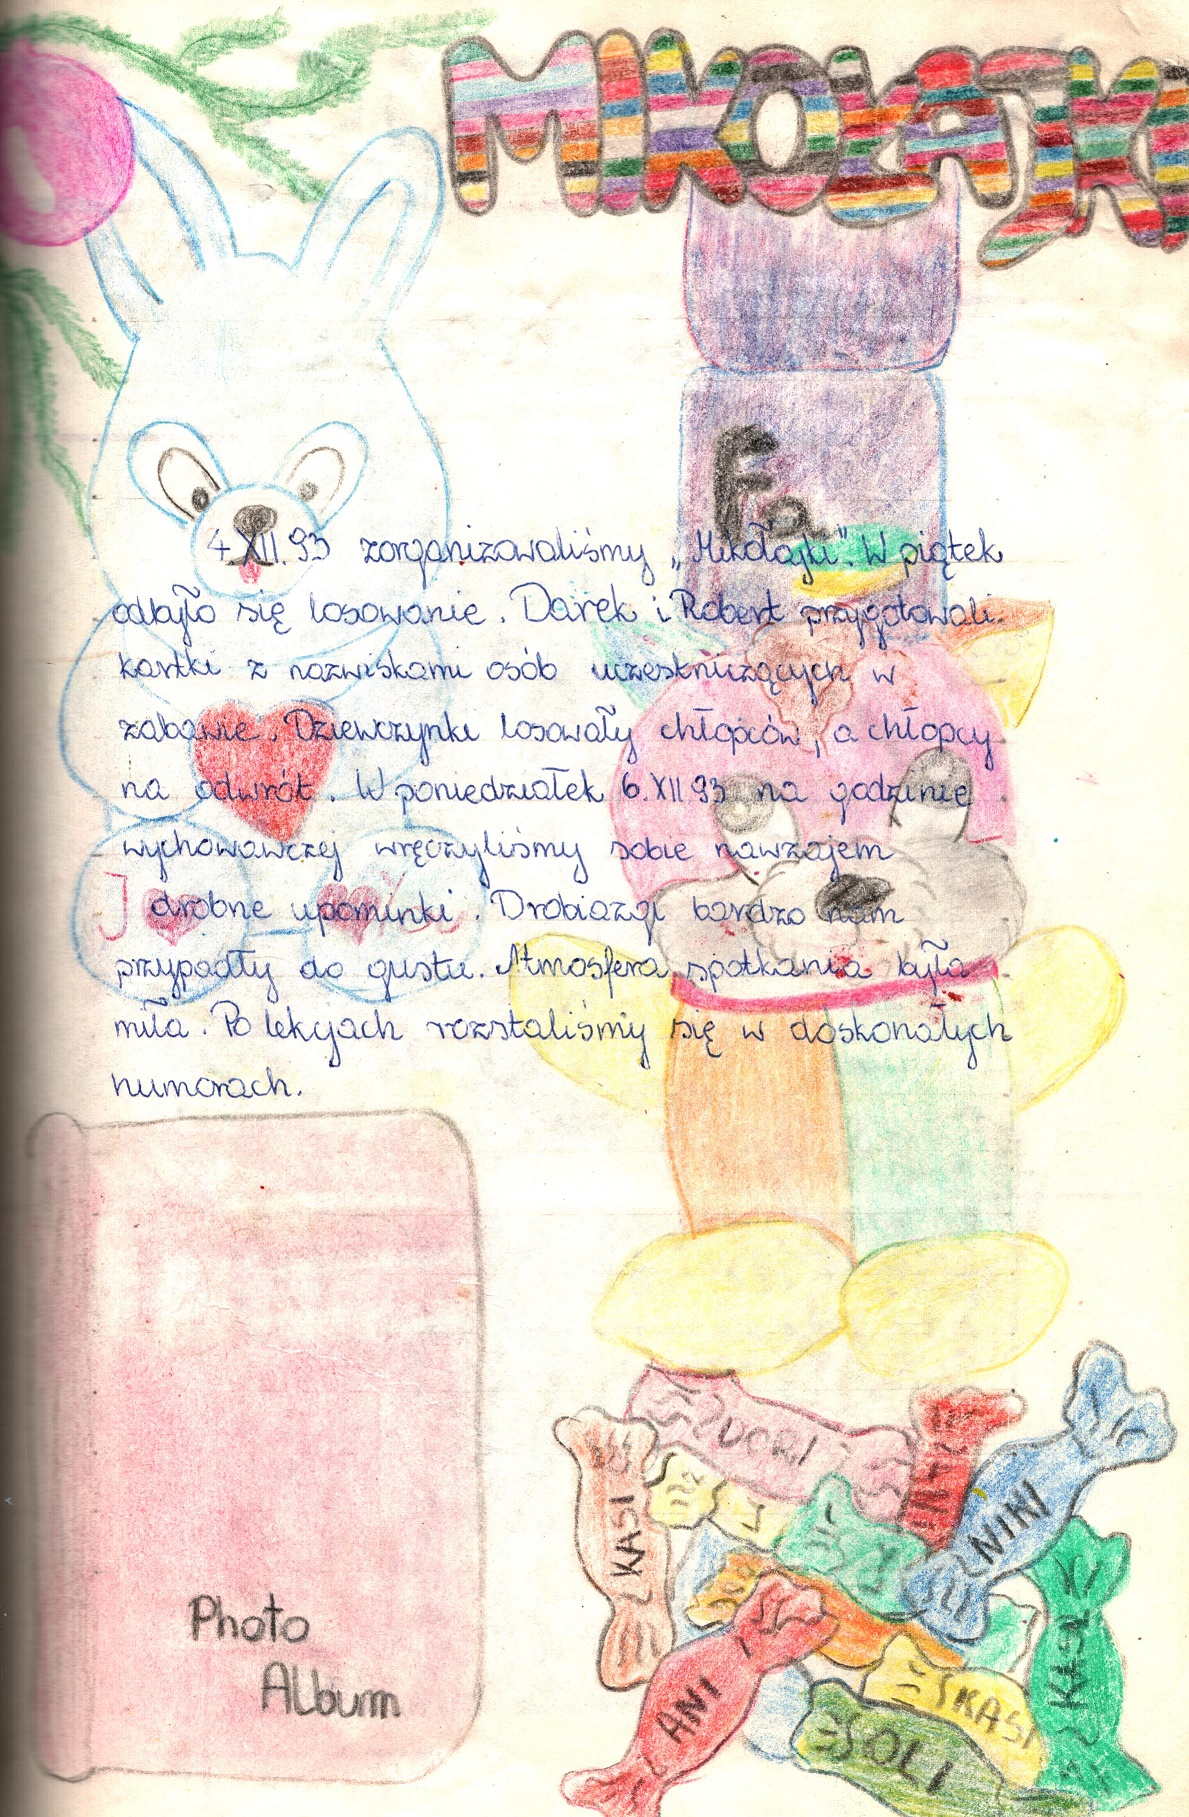 MIKOŁAJKI
Fa
4.XII.93 zorganizowaliśmy „Mikołajki". W piątek
odbyło się losowanie. Darek i Robert przygotowali
kartki z nazwiskami osób uczestniczących w
zabawie. Dziewczynki losowały chłopców, a chłopcy
na odwrót. W poniedziałek 6.XII 93 na godzinie
wychowawczej wręczyliśmy sobie nawzajem
drobne upominki. Drobiazgi bardzo nam
przypadły do gustu. Atmosfera spotkania była
miła. Po lekcjach rozstaliśmy się w doskonałych
humorach.
I
Photo
Album
KASI
NINI
KASI
ANI
KASI
OLI